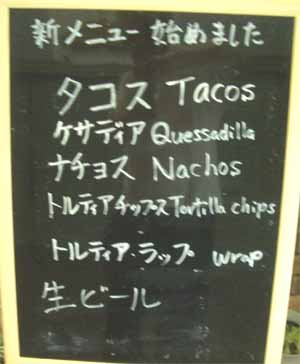 新メニュー始めました
タコス Tacos
ケサディア Quessadilla
ナチョス Nachos
トルティアチップース Tortilla chips
トルティア・ラップ wrap
生ビール